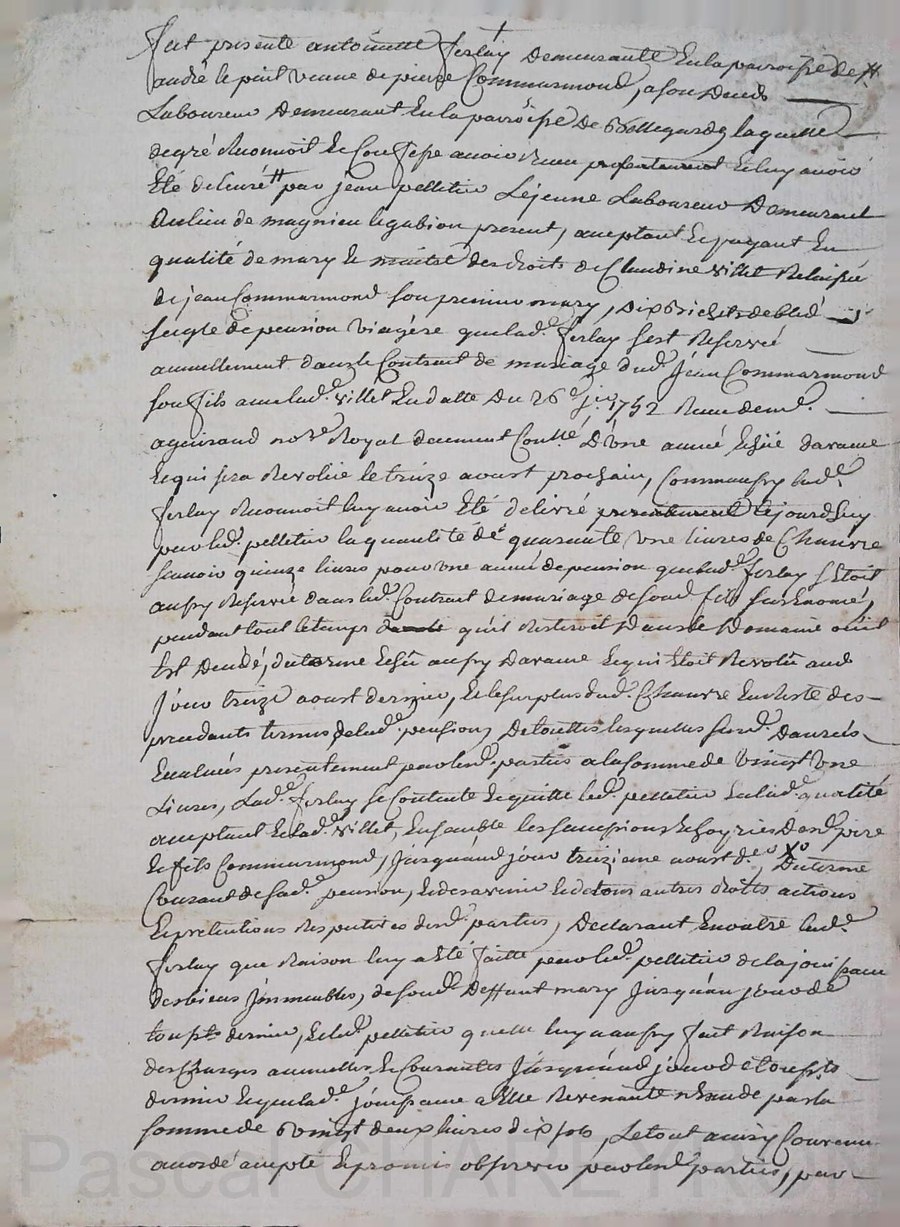 fut presente antoinette ferlay demeurante en la parroisse de st
andré le puit veuve de pierre Commarmond, a son deceds
Laboureur demeurant en la parroisse de Bellegarde laquelle
de gré Reconnoit et Confesse avoir receu presentement et luy avoir
Eté delivré par jean pelletier Lejeune Laboureur demeurant
au lieu de magnieu le gabion present, aceptant et payant en
qualité de mary et maitre des droits de Claudine villet Relaissée
de jean Commarmond son premier mary, dix Bichets de bled
seigle de pension viagère que lad.e ferlay s'est Reservée
annuellement dans le Contrat de mariage dud. jean Commarmond
son fils avec lad.e villet en datte du 26 1752 Receu de me.
aguiraud no.re Royal deument Conllé d'une année Echüe davance
et qui sera Revolüe le treize aoust prochain, Comm'aussy lad.e
ferlay Reconnoit luy avoir Eté delivré presentement cejourdhuy
par led. pelletier la quantité de quarante une livres de Chanvre
scavoir quinze livres pour une année de pension que lad.e ferlay s'Etoit
aussy Reservée dans led. Contrat de mariage de sond. fils susnomé,
pendant tout le temps qu'il Resteroit dans le domaine où il
Est decedé, du terme Echû aussy davance et qui Etoit Revolu aud.
jour treize aoust dernier, et le surplus dud. Chanvre en Reste des
precedants termes de lad.e pension, de touttes lesquelles sus.d. danrées
Evaluées presentement par lesd. parties a la somme de vingt une
Livres, Lad.e ferlay se Contente et quitte led. pelletier en lad.e qualité
aceptant et lad.e villet, ensemble les successions et hoyries desd. pere
et fils Commarmond, jusqu'aud jour treizieme aoust d.er Xo du terme
Courant de sad.e pension, et des avenir et de tous autres droits actions
et pretentions Respectives desd. parties, declarant en outre lad.e
ferlay que Raison luy a Eté faitte par led. pelletier de la jouissance
des biens jmmeubles, de sond. deffunt mary jusqu'au jour de
toussts. dernier, et led. pelletier qu'elle luy a aussy fait Raison
des Charges annuelles et Courantes jusqu'aud jour de toussts
dernier et que lad.e jouissance a Elle Revenante par la
somme de vingt deux livres dix sols, Le tout ainsy Convenu
acordé acepté et promis observer par lesd. parties, par
Pascal CHAREYRON